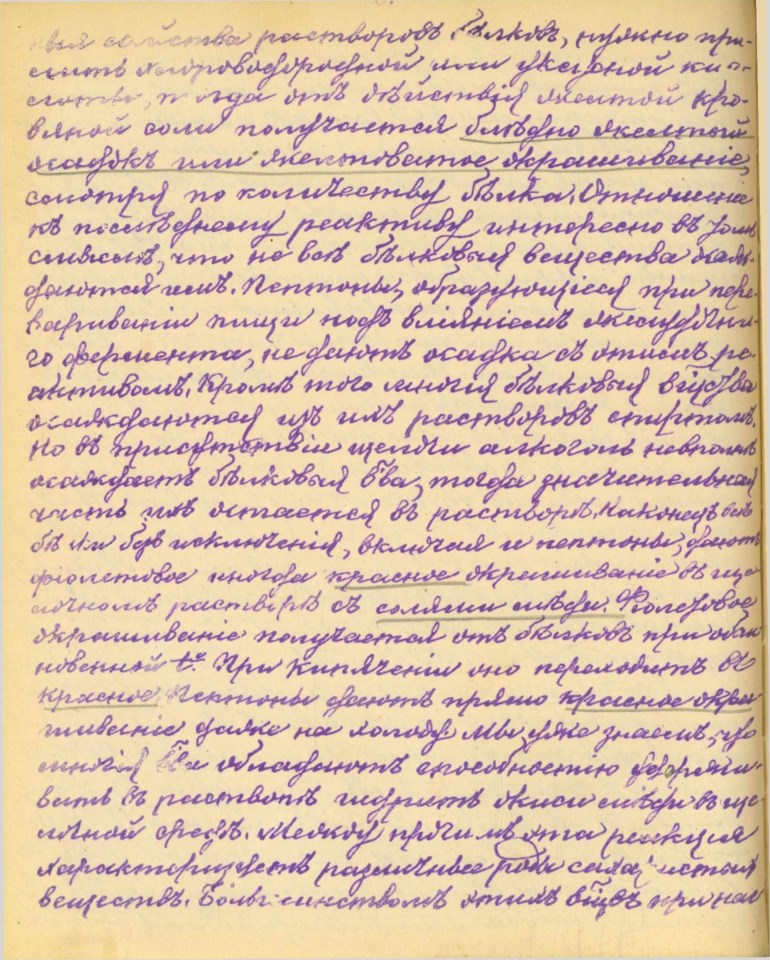 ныя свойства растворовъ бѣлковъ, нужно при-
лить хлороводородной или уксусной ки-
слоты, тогда отъ дѣйствія желтой кро-
вяной соли получается блѣдно желтый
осадокъ или желтоватое окрашиваніе,
смотря по количеству бѣлка. Отношеніе
къ послѣднему реактиву интересно въ томъ
смыслѣ, что не всѣ бѣлковыя вещества осаж-
даются имъ. Пептоны, образующіеся при пере-
вариваніи пищи подъ вліяніемъ желудочна-
го фермента, не даютъ осадка съ этимъ ре-
активомъ. Кромѣ того многія бѣлковыя вещества
осаждаются изъ ихъ растворовъ спиртомъ.
Но въ присутствіи щелочи алкоголь невполнѣ
осаждаетъ бѣлковыя в-ва, тогда значительная
часть ихъ остается въ растворѣ. Наконецъ всѣ
безъ исключенія, включая и пептоны, даютъ
фіолетовое иногда красное окрашиваніе въ ще-
лочномъ растворѣ съ солями мѣди. Фіолетовое
окрашиваніе получается отъ бѣлковъ при обык-
новенной t°. При кипяченіи оно переходитъ въ
красное. Пептоны даютъ прямо красное окра-
шиваніе даже на холоду. Мы уже знаемъ, что
многія в-ва обладаютъ способностію удержи-
вать въ растворѣ гидратъ окиси мѣди въ ще-
лочной средѣ. Между прочимъ эта реакція
характеризуетъ различные роды сахаристыхъ
веществъ. Большинствомъ этихъ в-въ при наг